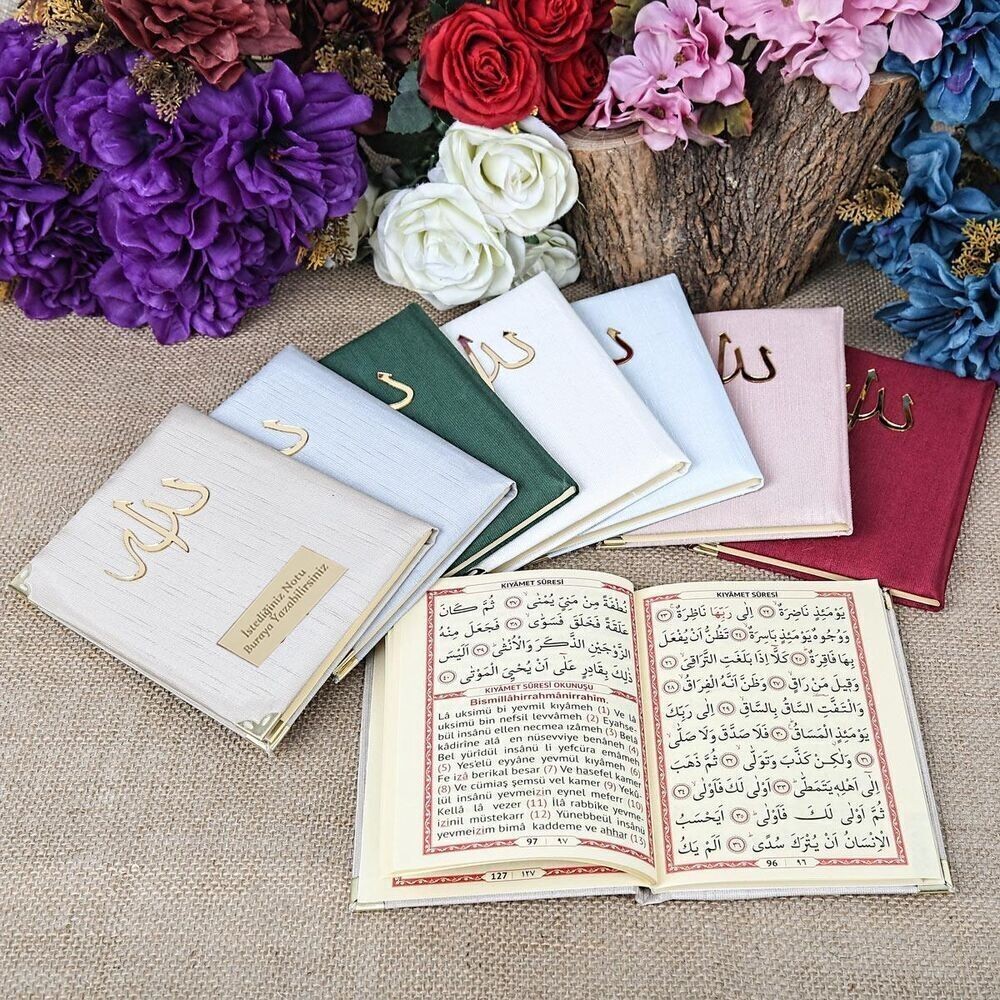 الله
İstediğiniz Notu
Buraya Yazabilirsiniz
KIYÂMET SÛRESİ
يَوْمَئِذٍ نَاضِرَةٌ ﴿٢٢﴾ اِلٰى رَبِّهَا نَاظِرَةٌ ﴿٢٣﴾
وَوُجُوهٌ يَوْمَئِذٍ بَاسِرَةٌ ﴿٢٤﴾ تَظُنُّ اَنْ يُفْعَلَ
بِهَا فَاقِرَةٌ ﴿٢٥﴾ كَلَّٓا اِذَا بَلَغَتِ التَّرَاقِيَ ﴿٢٦﴾
وَقِيلَ مَنْ رَاقٍ ﴿٢٧﴾ وَظَنَّ اَنَّهُ الْفِرَاقُ ﴿٢٨﴾
وَالْتَفَّتِ السَّاقُ بِالسَّاقِ ﴿٢٩﴾ اِلٰى رَبِّكَ
يَوْمَئِذٍ الْمَسَاقُ ﴿٣٠﴾ فَلَا صَدَّقَ وَلَا صَلّٰى
﴿٣١﴾ وَلٰكِنْ كَذَّبَ وَتَوَلّٰى ﴿٣٢﴾ ثُمَّ ذَهَبَ
اِلٰٓى اَهْلِهٖ يَتَمَطّٰى ﴿٣٣﴾ اَوْلٰى لَكَ فَاَوْلٰى ﴿٣٤﴾
ثُمَّ اَوْلٰى لَكَ فَاَوْلٰى ﴿٣٥﴾ اَيَحْسَبُ
الْاِنْسَانُ اَنْ يُتْرَكَ سُدًى ﴿٣٦﴾ اَلَمْ يَكُ
96 | ٩٦
KIYÂMET SÛRESİ
نُطْفَةً مِنْ مَنِيٍّ يُمْنٰى ﴿٣٧﴾ ثُمَّ كَانَ
عَلَقَةً فَخَلَقَ فَسَوّٰى ﴿٣٨﴾ فَجَعَلَ مِنْهُ
الزَّوْجَيْنِ الذَّكَرَ وَالْاُنْثٰى ﴿٣٩﴾ اَلَيْسَ
ذٰلِكَ بِقَادِرٍ عَلٰٓى اَنْ يُحْيِيَ الْمَوْتٰى ﴿٤٠﴾
KIYÂMET SÛRESİ OKUNUŞU
Bismillâhirrahmânirrahîm.
Lâ uksimü bi yevmil kıyâmeh (1) Ve lâ
uksimü bin nefsil levvâmeh (2) Eyahse-
bül insânü ellen necmea ızâmeh (3) Belâ
kâdirîne alâ en nüsevviye benâneh (4)
Bel yürîdül insânü li yefcüra emâmeh
(5) Yes'elü eyyâne yevmül kıyâmeh (6)
Fe izâ berikal besar (7) Ve hasefel kamer
(8) Ve cümiaş şemsü vel kamer (9) Yekû-
lül insânü yevmeizin eynel meferr (10)
Kellâ lâ vezer (11) İlâ rabbike yevme-
izinil müstekarr (12) Yünebbeül insânü
yevmeizin bimâ kaddeme ve ahhar (13)
97 | ٩٧
127 | ١٢٧